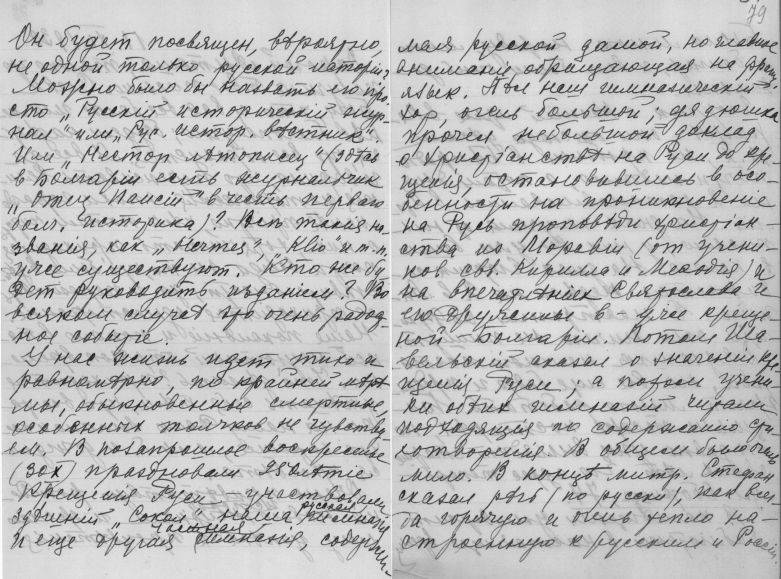 Он будет посвящен, вѣроятно,
не одной только русской исторіи?
Можно было бы назвать его про-
сто „Русскій историческій жур-
нал" или „Рус. истор. вѣстник".
Или „Нестор лѣтописец" (здѣсь
в Болгаріи есть журнальчик
„Отец Паисій" в честь перваго
болг. историка)? Всѣ такія на-
званія, как , Кліо и т. п.
уже существуют. Кто же бу-
дет руководить изданіем? Во
всяком случаѣ это очень радост-
ное событіе.
У нас жизнь идет тихо и
равномѣрно, по крайней мѣрѣ
мы, обыкновенные смертные,
особенных толчков не чувству-
ем. В позапрошлое воскресенье
(30х) праздновали 950лѣтіе
Крещенія Руси – участвовали
здѣшній „Сокол", наша русская гимназія
и еще другая частная гимназія, содержи-
79
мая русской дамой, но главное
вниманіе обращающая на франц.
язык. Пѣл наш гимназическій
хор, очень большой; дядюшка
прочел небольшой доклад
о христіанствѣ на Руси до кре-
щенія, остановившись в осо-
бенности на проникновеніе
на Русь проповѣди христіан-
ства из Моравіи (от учени-
ков свв. Кирилла и Меѳодія) и
на впечатлѣніях Святослава и
его дружины в – уже креще-
ной Болгаріи. Потом Ша-
вельскій сказал о значеніи кре-
щенія Руси; а потом учени-
ки обѣих гимназій читали
подходящія по содержанію сти-
хотворенія. В общем было очень
мило. В концѣ митр. Стефан
сказал рѣчь (по русски), как все-
гда горячую и очень тепло на-
строенную к русским и Россіи